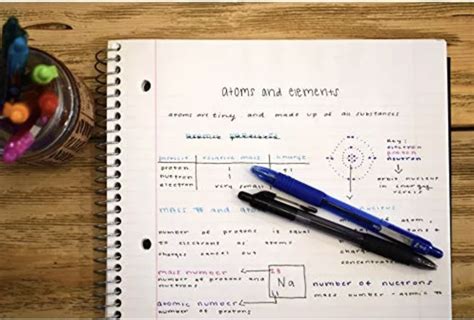 atoms and elements
atoms are tiny and made up of all substances
particle relative mass charge
proton 1 +1
neutron 1
electron very small
Key:
electron
proton
neutron
orbit nucleus
in energy
levels
mass # and
nucleus
number of protons is equal
to electrons so atoms
charges cancel out
mass number
number of protons and
neutrons
atomic number
number of protons
Na
number of neutrons
mass number - atomic #